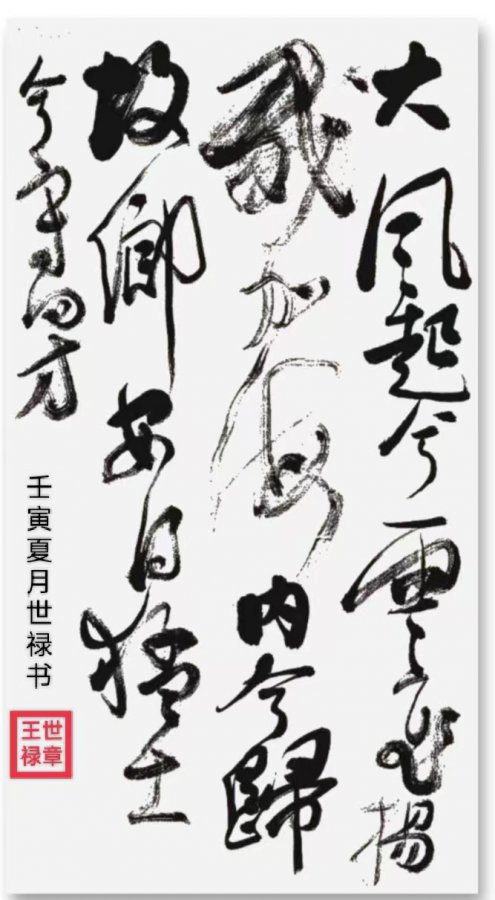 大風起兮雲飛揚
威加海内兮歸
故鄉安得猛士
兮守四方
壬寅夏月世禄书
王世
禄章